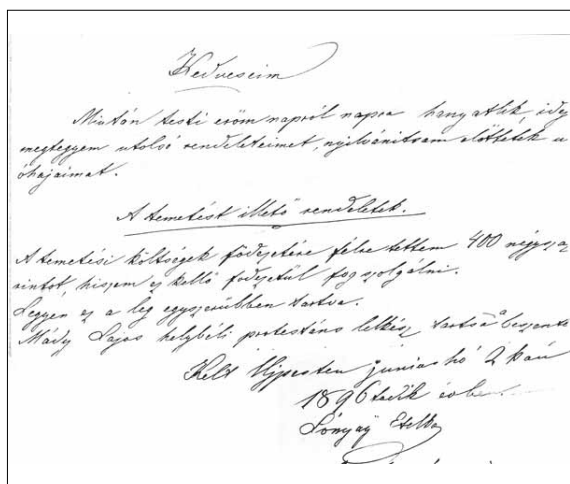 Kedveseim
Miután testi erőm napról napra hanyatlik, idej
megtegyem utolsó rendeleteimet, nyilvánitsam előttetek u
óhajaimat.
A temetést illető rendeletek.
A temetési költségek födezetére félre tettem 400 négysz az
rintot, hiszem ez kellő fodezetül fog szolgálni.
Legyen ez a leg egyszerübben tartva.
Mády Lajos helybéli protestáns lelkész tartsa a beszente
Kelt Ujpesten junius hó 2 kán
1896 tadik évben
Lónyay Etelka